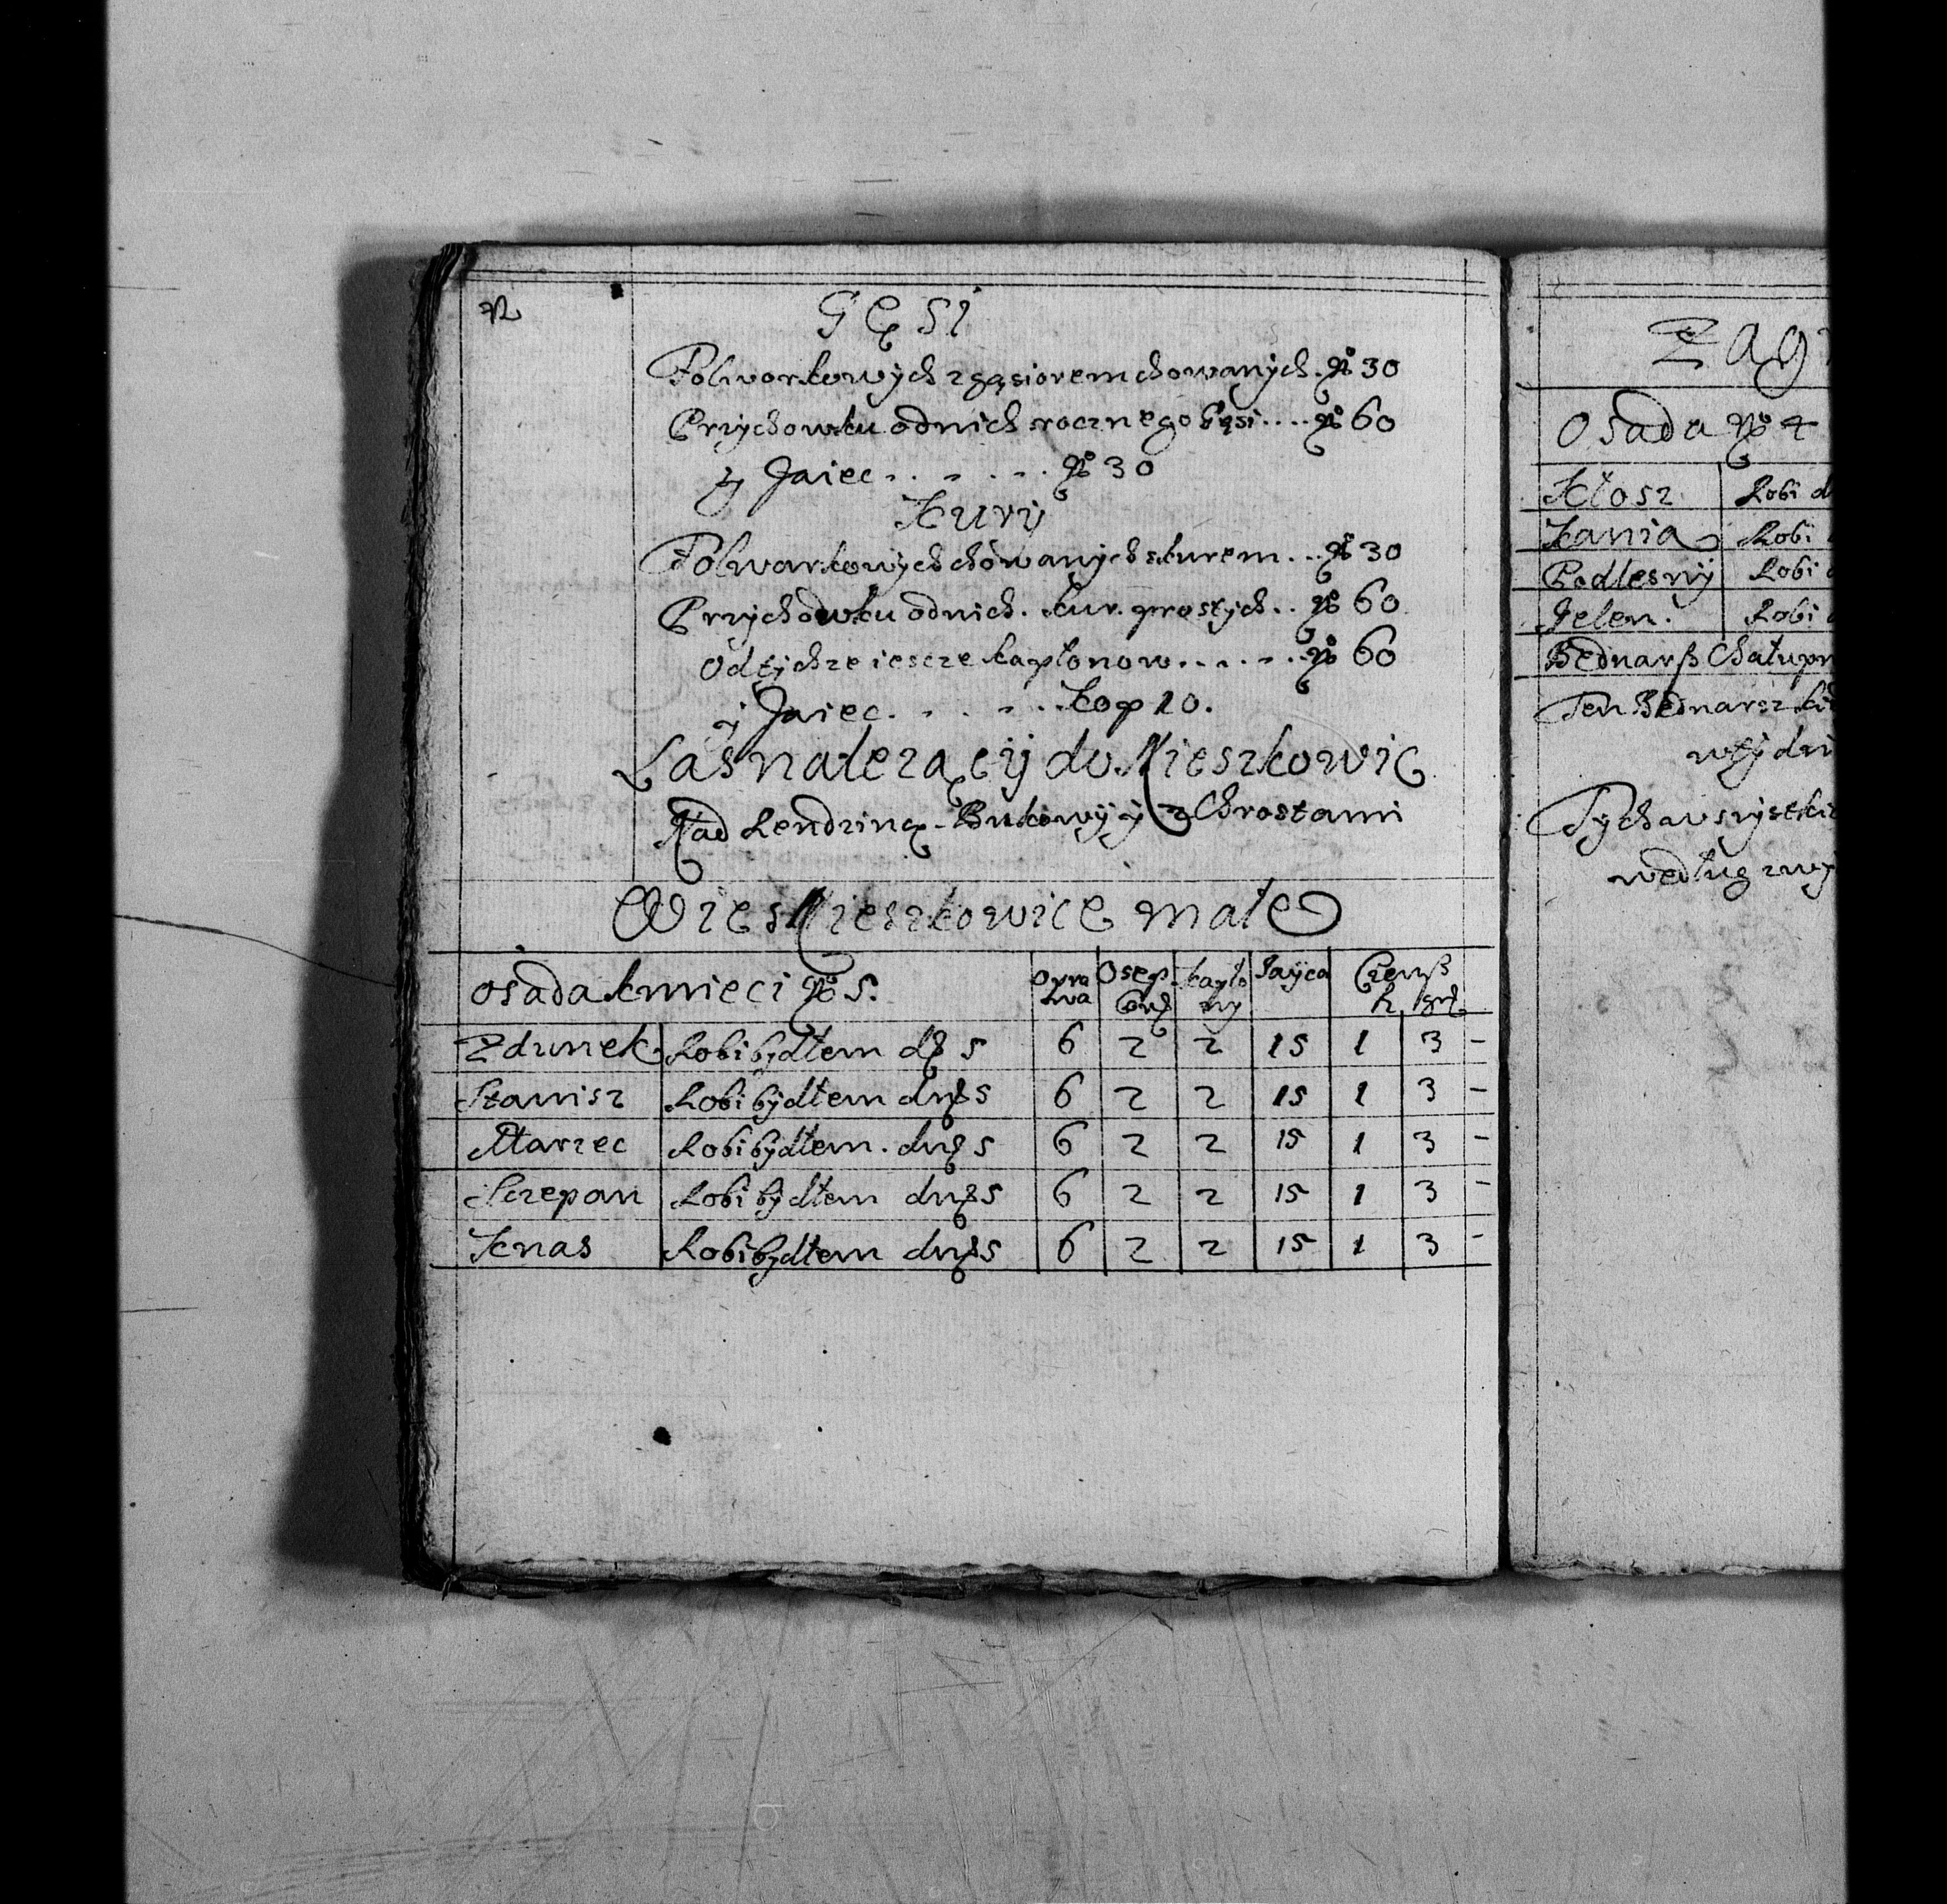 GĘSI
Folworkowych z gąsiorem chowanych. No 30
Przychowku od nich rocznego Gęsi.... No 60
y Jaiec . . . . . . No 30
Kury
Folwarkowych chowanych s kurem... No 30
Przychowku od nich. kur. prostych.. No 60
od tych ze iescze kapłonow...... No 60
y Jaiec. . . . . . kop 10.
Las nalezącÿ do Nieszkowic
Nad Lendziną. Bukowÿ y z Chrostami
Wies Nieszkowice małe
osada kmieci No 5.
Opra
wa
Osep
kapło
ny
Jaÿca
Czensz
Zdunek Robi bydłem 5 6 2 2 15 1 3 -
Stanisz Robi bydłem 5 6 2 2 15 1 3 -
Marzec Robi bydłem. 5 6 2 2 15 1 3 -
Sczepan Robi bydłem 5 6 2 2 15 1 3 -
Robi bydłem 5 6 2 2 15 1 3 -
Zag
Osada No 4
Kłosz Robi d
Kania Robi
Podlesnÿ Robi
Jelen. Robi
Bednarß Chałupn
Ten Bednarsz
Tych wszystki
według zwy